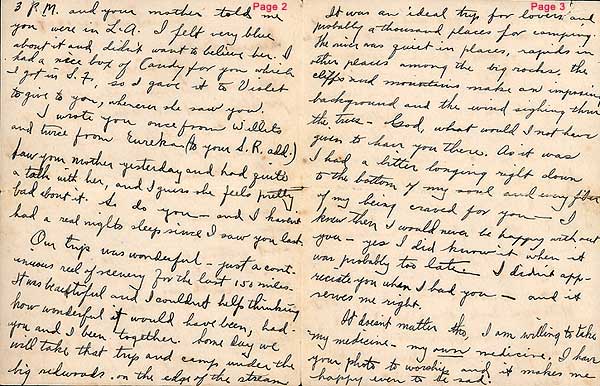 Page 2
3 P.M. and your mother told me
you were in L.A. I felt very blue
about it and didnt want to believe her. I
had a nice box of Candy for you which
I got in S.F, so I gave it to Violet
to give to you, whenever she saw you.
I wrote you once from Willits
and twice from Eureka (to your S.R. add.)
Saw your mother yesterday and had quite
a talk with her, and I guess she feels pretty
bad about it. So do you — and I havent
had a real nights sleep since I saw you last.
Our trip was wonderful — just a cont-
inuous reel of scenery for the last 150 miles.
It was beautiful and I couldnt help thinking
how wonderful it would have been, had-
you and I been together. Some day we
will take that trip and camp under the
big redwoods, on the edge of the stream
Page 3
It was an ideal trip for lovers and
probably a thousand places for camping.
The river was quiet in places, rapids in
other places among the big rocks, the
cliffs and mountains make an imposing
background and the wind sighing thru
the trees — God, what would I not have
given to have you there. As it was
I had a bitter longing right down
to the bottom of my soul and every fiber
of my being craved for you — I
knew then I would never be happy without
you — yes I did know it when it
was probably too late — I didnt app-
reciate you when I had you — and it
serves me right.
It doesnt matter tho, I am willing to take
my medicine — my own medicine. I have
your photo to worship and it makes me
happy even to be sad.